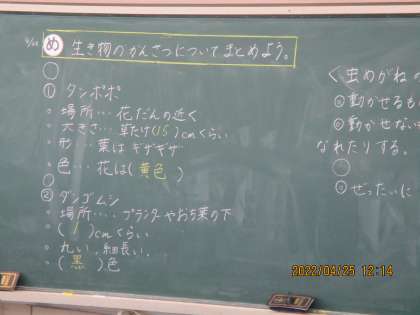 4/25 め 生き物のかんさつについてまとめよう。
① タンポポ
・場所…花だんの近く
・大きさ…草たけ(15)cmくらい
・形…葉はギザギザ
・色…花は(黄色)
② ダンゴムシ
・場所…プランターやおち葉の下
・(1)cmくらい
・丸い、細長い、
・(黒)色
<虫めがねの
◎動かせるも
◎動かせない
なれたりする。
◎ぜったいに
2022/04/25 12:14